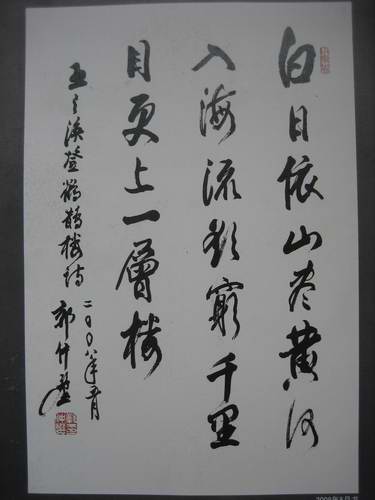 白日依山尽黄河
入海流欲窮千里
目更上一層楼
王之涣登鹳鹊楼诗
二〇〇八年五月
郭仲